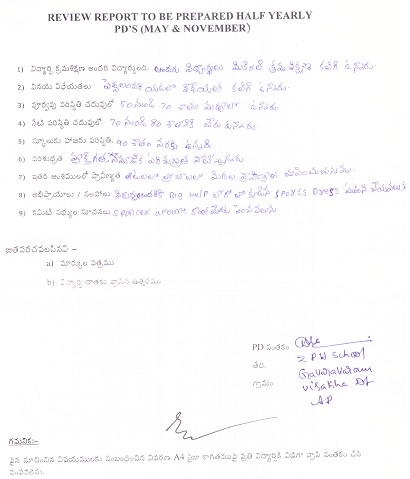 REVIEW REPORT TO BE PREPARED HALF YEARLY
PD'S (MAY & NOVEMBER)
1) విద్యార్థి క్రమశిక్షణ అందరి విద్యార్థులది. అందరు విద్యార్థులు మిక్కిలి క్రమశిక్షణ కలిగి ఉన్నారు.
2) వినయ విధేయతలు పెద్దలందరి యెడలా విధేయతలే కలిగి ఉన్నారు.
3) పూర్వపు పరిస్థితి చదువులో 60 నుండి 70 శాతం మధ్యలో ఉన్నారు.
4) నేటి పరిస్థితి చదువులో 70 నుండి 80 శాతానికి చేరుకున్నారు.
5) స్కూలుకు హాజరు పరిస్థితి. 90 శాతం వరకు ఉన్నది
6) పరిశుభ్రత
7) ఇతర అంశములలో ప్రావీణ్యత ఆటలలో
8) అభిప్రాయాలు / సలహాలు BIG HELP లోగో తో కూడిన SPORTS DRESS
9) కమిటీ సభ్యుల సూచనలు sponcer amount కొంత మేరకు పెంచవలెను
జతపరచవలసినవి –
a) మార్కుల పత్రము
b) విద్యార్థి దాతకు వ్రాసిన ఉత్తరము
PD సంతకం
Z P H School
తేది.
Gavaravaram
గ్రామం
Visakha Dt
AP
గమనిక:-
పైన సూచించిన విషయములకు సంబంధించిన వివరణ A4 సైజు కాగితముపై ప్రతి విద్యార్థికి విడిగా వ్రాసి సంతకం చేసి
పంపవలెను.